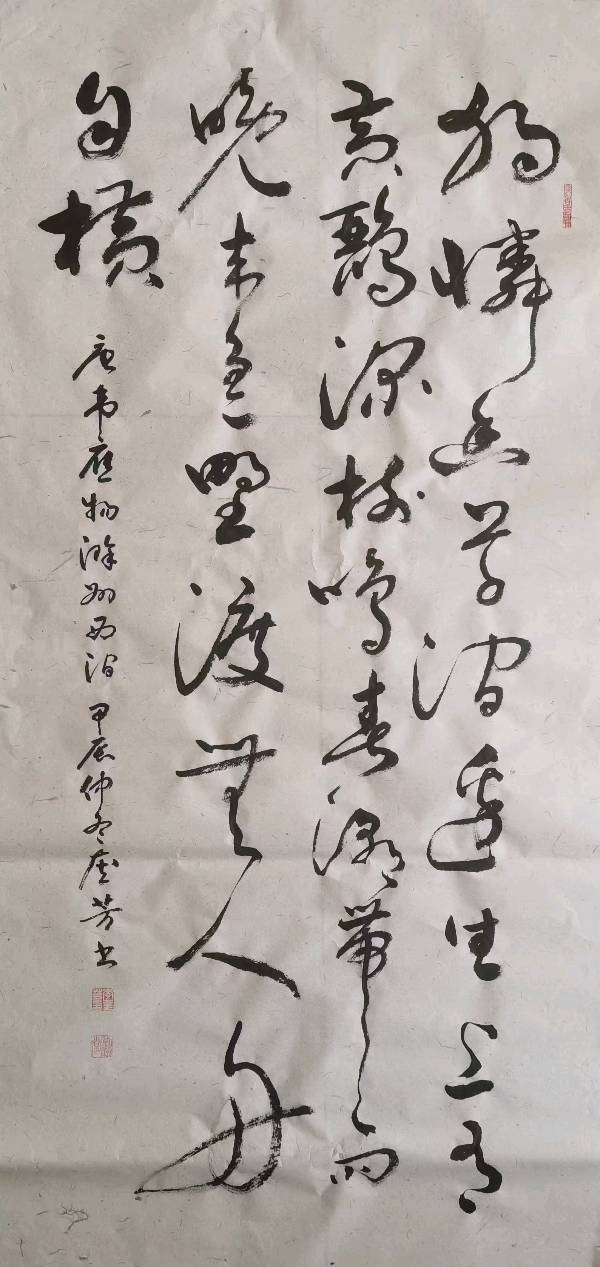 独怜幽草涧边生上有
黄鹂深树鸣春潮带雨
晚来急野渡无人舟
自横
唐韦应物滁州西涧 甲辰仲冬 芳书